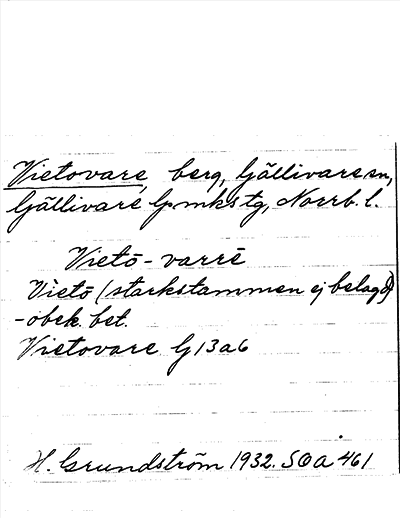 Vietovare, berg, Gällivare sn,
Gällivare lpmks tg, Norrb. l.
Vietō-varrē
Vietō (starkstammen ej belagd)
-obek. bet.
Vietovare G 13a6
H. Grundström 1932. SOA 461